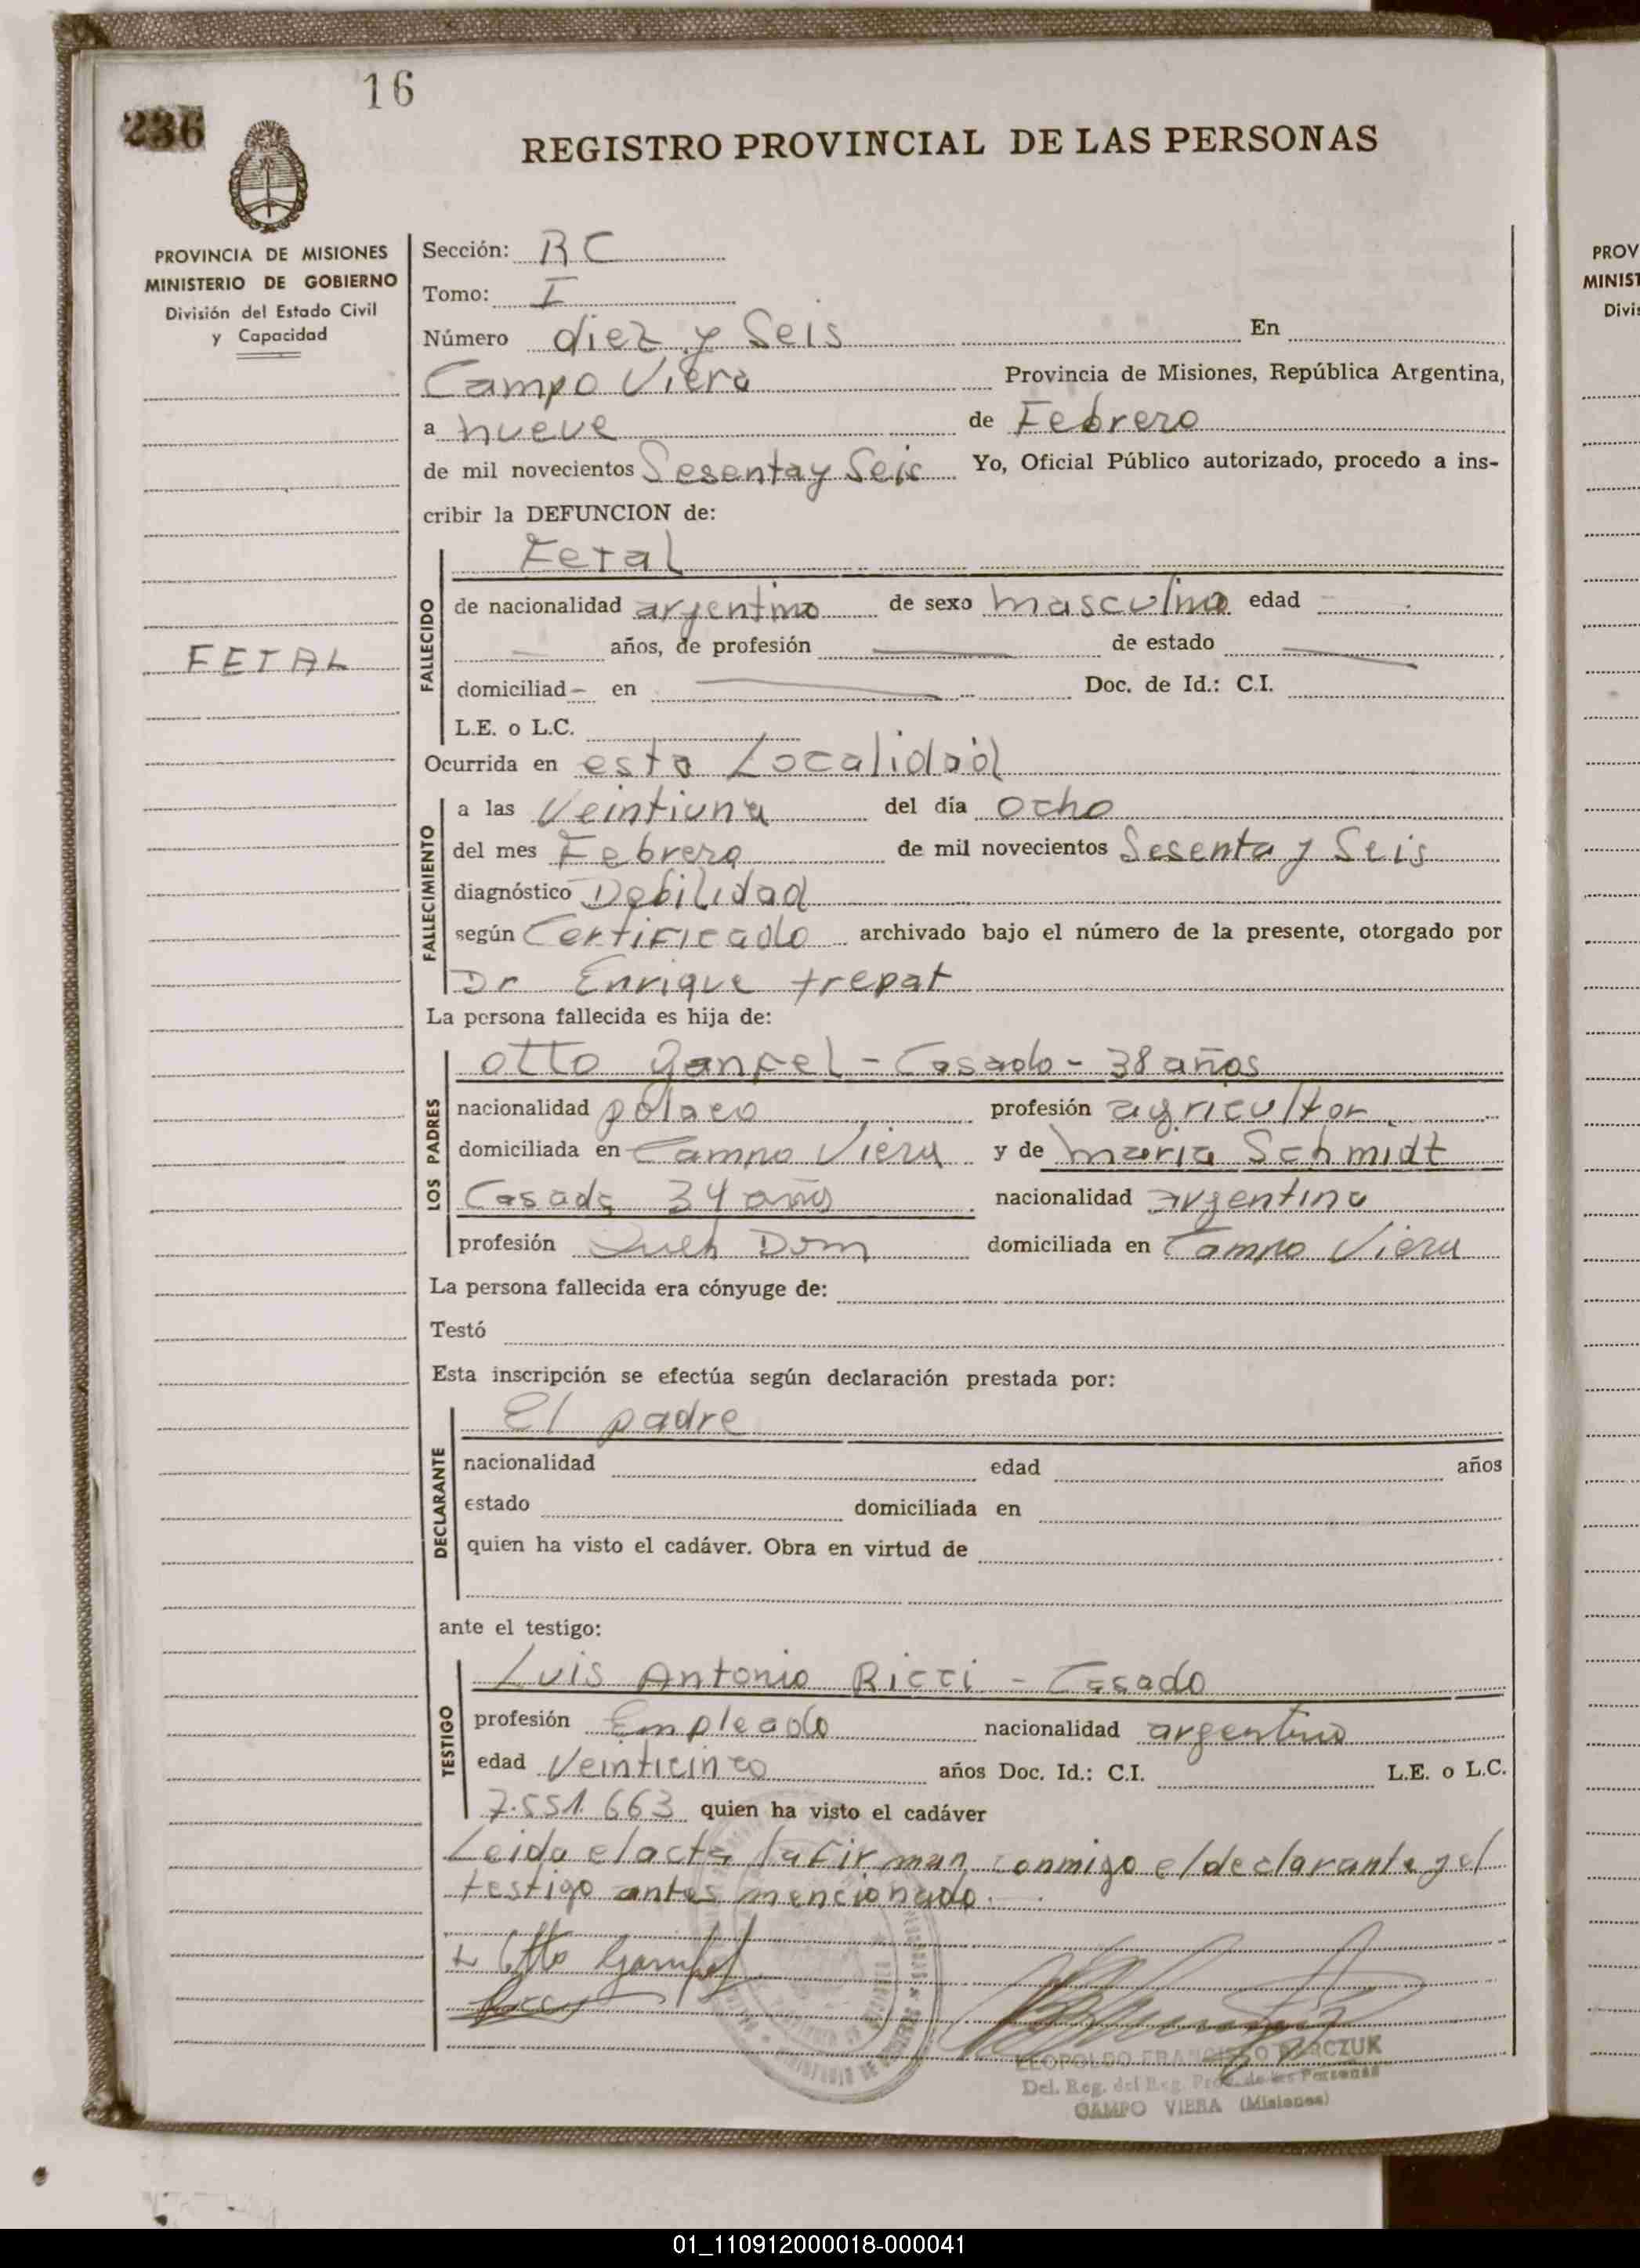 16
236
REGISTRO PROVINCIAL DE LAS PERSONAS
PROVINCIA DE MISIONES
MINISTERIO DE GOBIERNO
División del Estado Civil
y Capacidad
FETAL
Sección: RC
Tomo: I
Número diez y Seis En
Campo Viera Provincia de Misiones, República Argentina,
a nueve de Febrero
de mil novecientos Sesenta y Seis Yo, Oficial Público autorizado, procedo a ins-
cribir la DEFUNCION de:
FALLECIDO
Fetal
de nacionalidad argentino de sexo masculino edad —
— años, de profesión — de estado —
domiciliad– en — Doc. de Id.: C.I.
L.E. o L.C.
Ocurrida en esta Localidad
FALLECIMIENTO
a las Veintiuna del día ocho
del mes Febrero de mil novecientos Sesenta y Seis
diagnóstico Debilidad
según Certificado archivado bajo el número de la presente, otorgado por
Dr Enrique trepat
La persona fallecida es hija de:
LOS PADRES
Otto - Casado - 38 años
nacionalidad polaco profesión agricultor
domiciliada en Campo Viera y de maria Schmidt
Casada 34 años nacionalidad argentina
profesión domiciliada en Campo Viera
La persona fallecida era cónyuge de:
Testó
Esta inscripción se efectúa según declaración prestada por:
DECLARANTE
El padre
nacionalidad edad años
estado domiciliada en
quien ha visto el cadáver. Obra en virtud de
ante el testigo:
TESTIGO
Luis Antonio Ricci - Casado
profesión Empleado nacionalidad argentino
edad Veinticinco años Doc. Id.: C.I. L.E. o L.C.
7.551.663 quien ha visto el cadáver
Leida el acta la firman conmigo el declarante y el
testigo antes mencionado.
Otto
LEOPOLDO FRANCISCO
Del. Reg. del Reg. Prov. de las Personas
CAMPO VIERA (Misiones)
PROV
MINIST
Divis
01_110912000018-000041